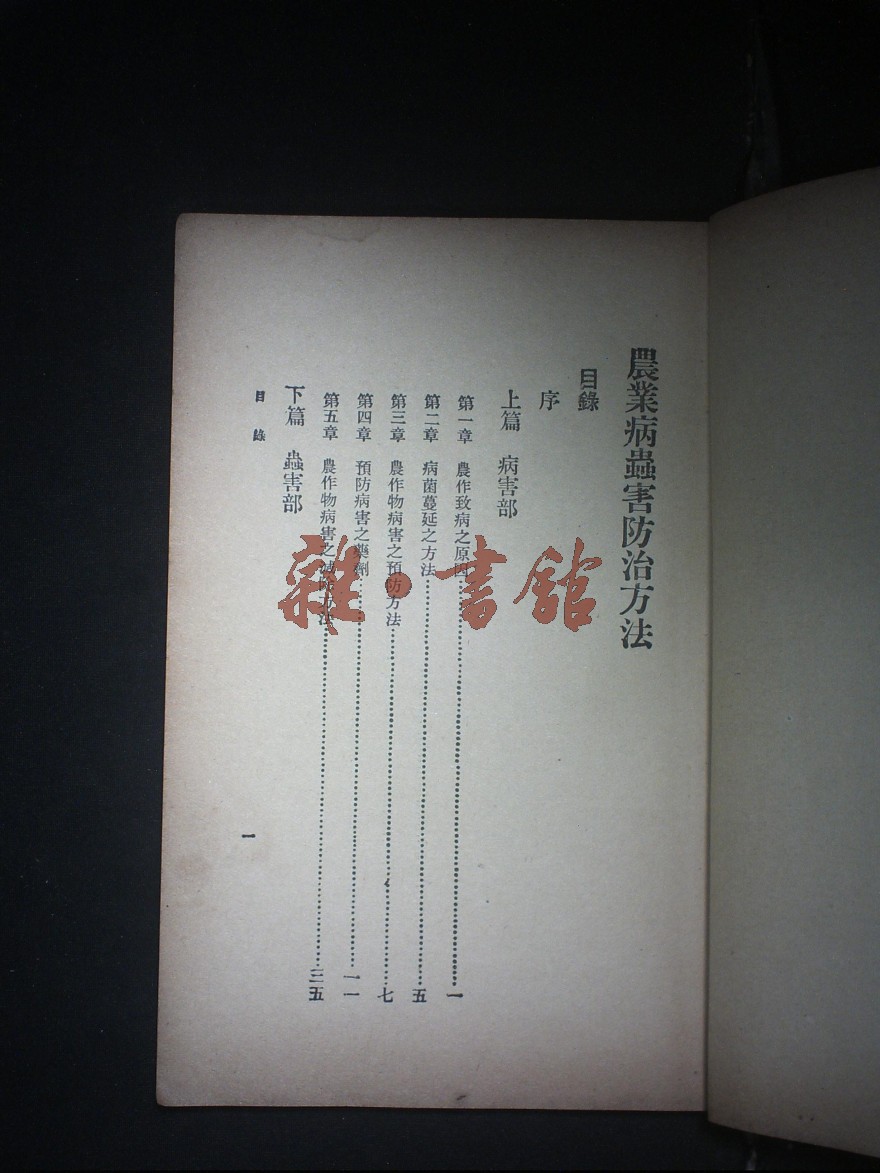 農業病蟲害防治方法
目錄
序
上篇 病害部
第一章 農作致病之原因……一
第二章 病菌蔓延之方法……五
第三章 農作物病害之預防方法……七
第四章 預防病害之藥劑……一一
第五章 農作物病害之減除方法……三五
下篇 蟲害部
目錄
一
雜·書館